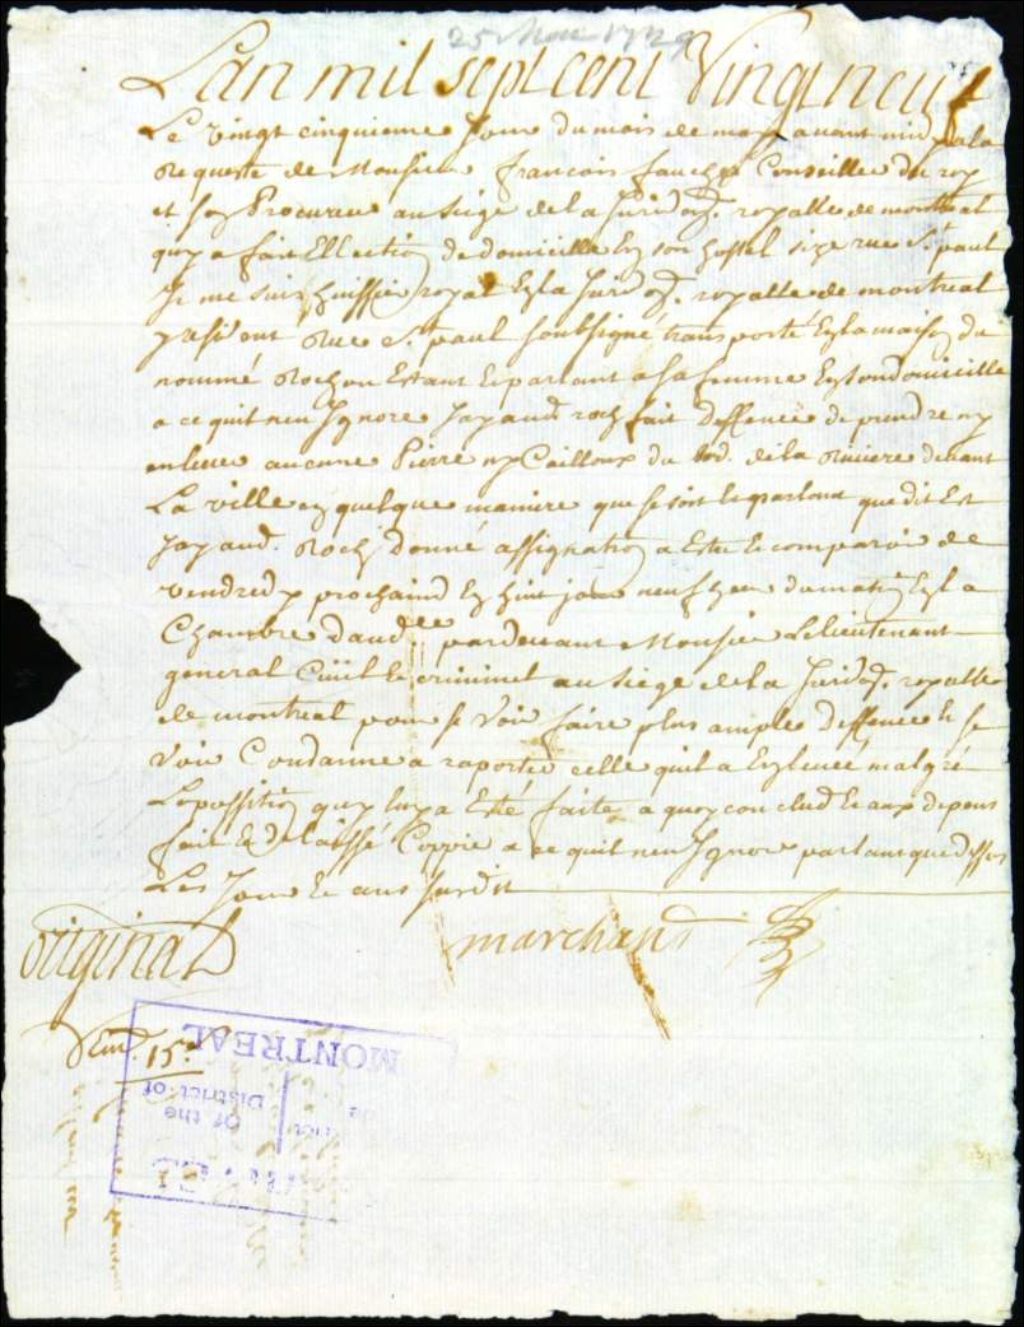 25 Mars 1729
Lan mil sept cent Vingt neuf
Le vingt cinquieme Jour du mois de mars avant midy a la
Requeste de Monsieur francois foucher Conseiller du roy
et son Procureur au siege de la Juridon. royalle de montreal
quy a fait Ellection de domicille En son hostel size rue St. paul
Je me suis huissier royal En la Juridon. royalle de montreal
resident Rue St. paul soubsigné transporté En la maison du
nommé Rochon Estant Et parlant a sa femme En son domicille
a ce quil nen Ignore Jay aud. roch fait deffence de prendre ny
enlever aucune Pierre ny Cailloux du bord. de la Riviere devant
La ville en quelque maniere que se soit Et parlant que dit Est
Jay aud. Roch donné assignation a Estre Et comparoir de
vendredy prochain En huit jour neuf heure du matin En la
Chambre daud.ce pardevant Monsieur Le lieutenant
general Civil Et criminel au siege de la Juridon. royalle
de montreal pour se Voir faire plus ample deffence Et se
Voir Condanne a raporter celle quil a Enlevé malgré
Lopossition quy luy a Esté faite a quoy conclud Et aux depens
fait Et delaissé Coppie a ce quil nen Ignore parlant que dessus
Les Jour Et ans susdit
original
marchand
15
MONTREAL
District of
Of the
de